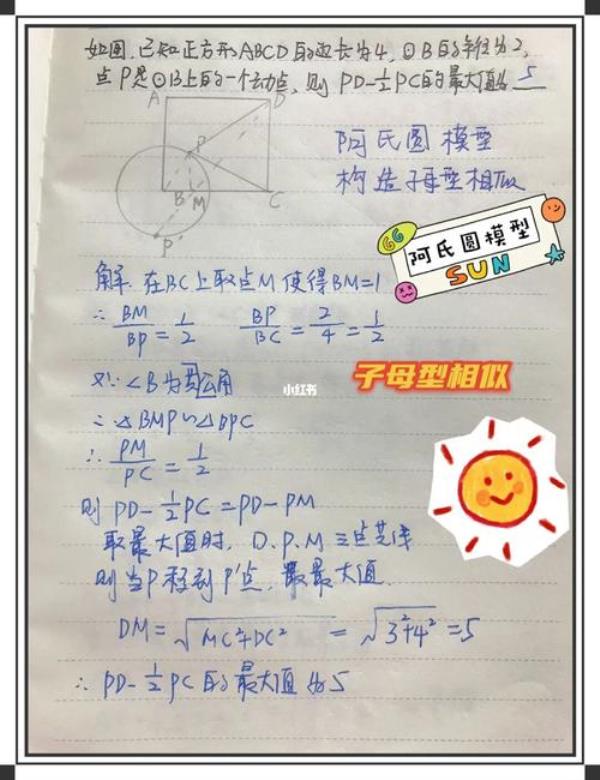 如图,已知正方形ABCD的边长为4,⊙B的半径为2,
点P是⊙B上的一个动点,则PD-½PC的最大值为 5
A
D
P
B
M
C
P'
阿氏圆模型
构造子母型相似
66
阿氏圆模型
SUN
解:在BC上取点M使得BM=1
∴ BM/BP = 1/2 BP/BC = 2/4 = 1/2
又∵∠B为公共角
∴△BMP∽△BPC
子母型相似
小红书
∴ PM/PC = 1/2
则PD-½PC=PD-PM
取最大值时,D.P.M三点共线
则当P移到P'点,最大值
DM=√MC²+DC² = √3²+4² =5
∴PD-½PC的最大值为5